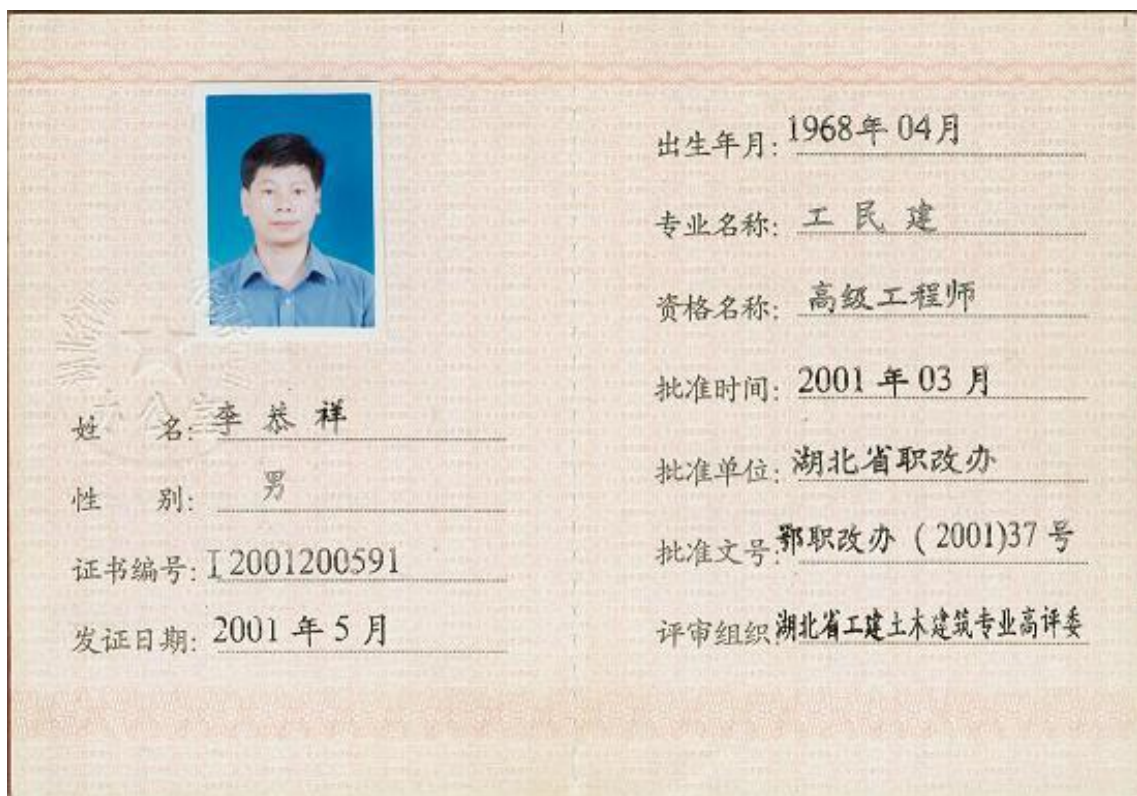 姓 名: 李恭祥
性 别: 男
证书编号: I2001200591
发证日期: 2001 年 5 月
出生年月: 1968年 04月
专业名称: 工 民 建
资格名称: 高级工程师
批准时间: 2001 年 03 月
批准单位: 湖北省职改办
批准文号: 鄂职改办 ( 2001)37 号
评审组织 湖北省工建土木建筑专业高评委